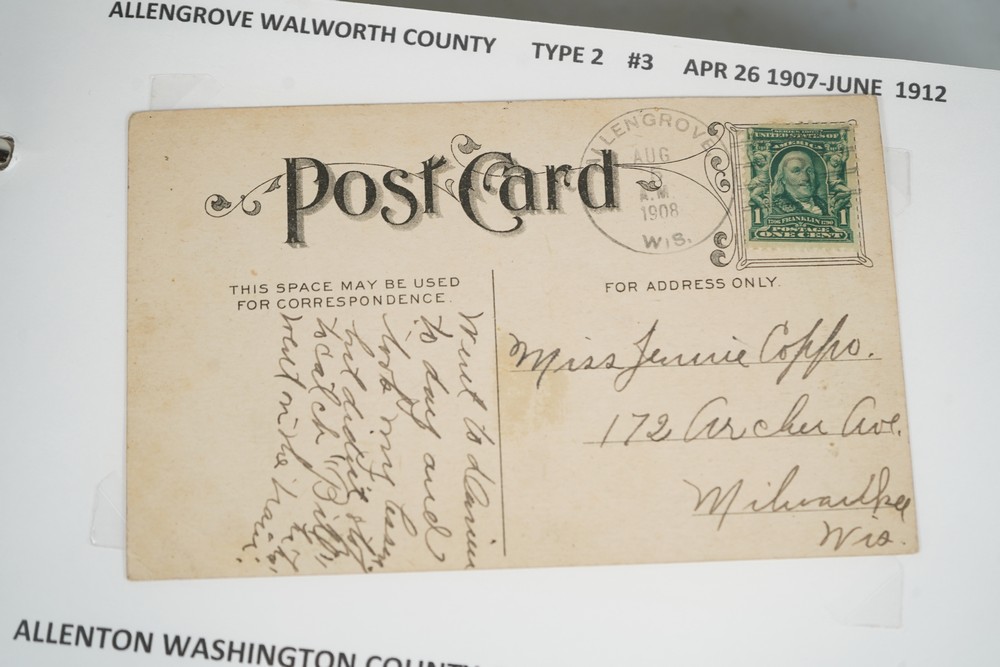 ALLENGROVE WALWORTH COUNTY TYPE 2 #3 APR 26 1907-JUNE 1912
Post Card
ALLENGROVE
AUG
A.M.
1908
WIS.
SERIES 1902
UNITED STATES OF
AMERICA
1 1
FRANKLIN
POSTAGE
ONE CENT
THIS SPACE MAY BE USED
FOR CORRESPONDENCE.
FOR ADDRESS ONLY.
Went to
to day and
took my
but didn't
to catch "Bill"
went on the train.
Miss Jennie Coppo.
172 Archer Ave.
Milwaukee
Wis.
ALLENTON WASHINGTON COUNTY